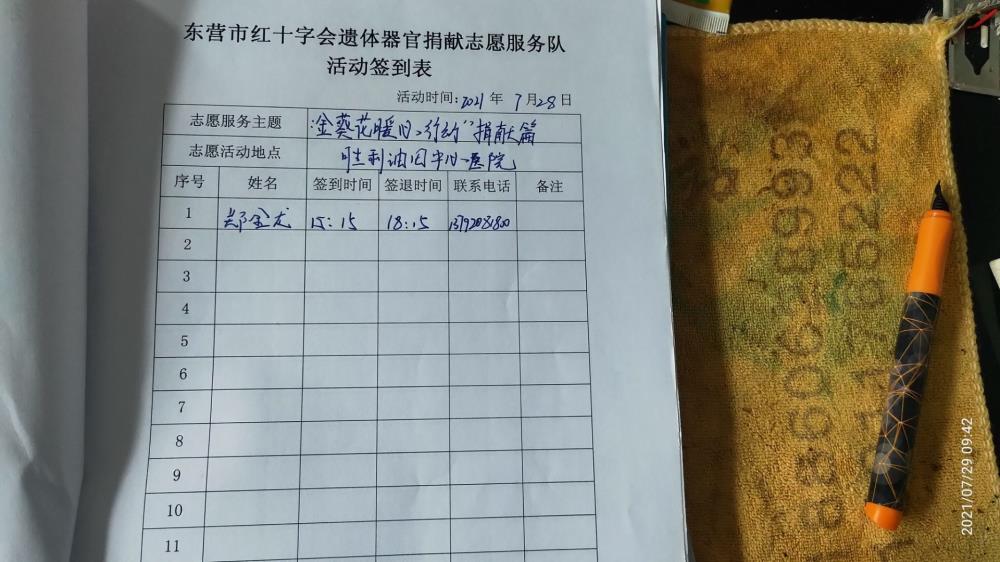 东营市红十字会遗体器官捐献志愿服务队
活动签到表
活动时间:2021年7月28日
志愿服务主题 "金葵花暖阳行动"捐献篇
志愿活动地点 胜利油田中心医院
序号 姓名 签到时间 签退时间 联系电话 备注
1 郑金龙 15:15 18:15
2
3
4
5
6
7
8
9
10
11
2021/07/29 09:42